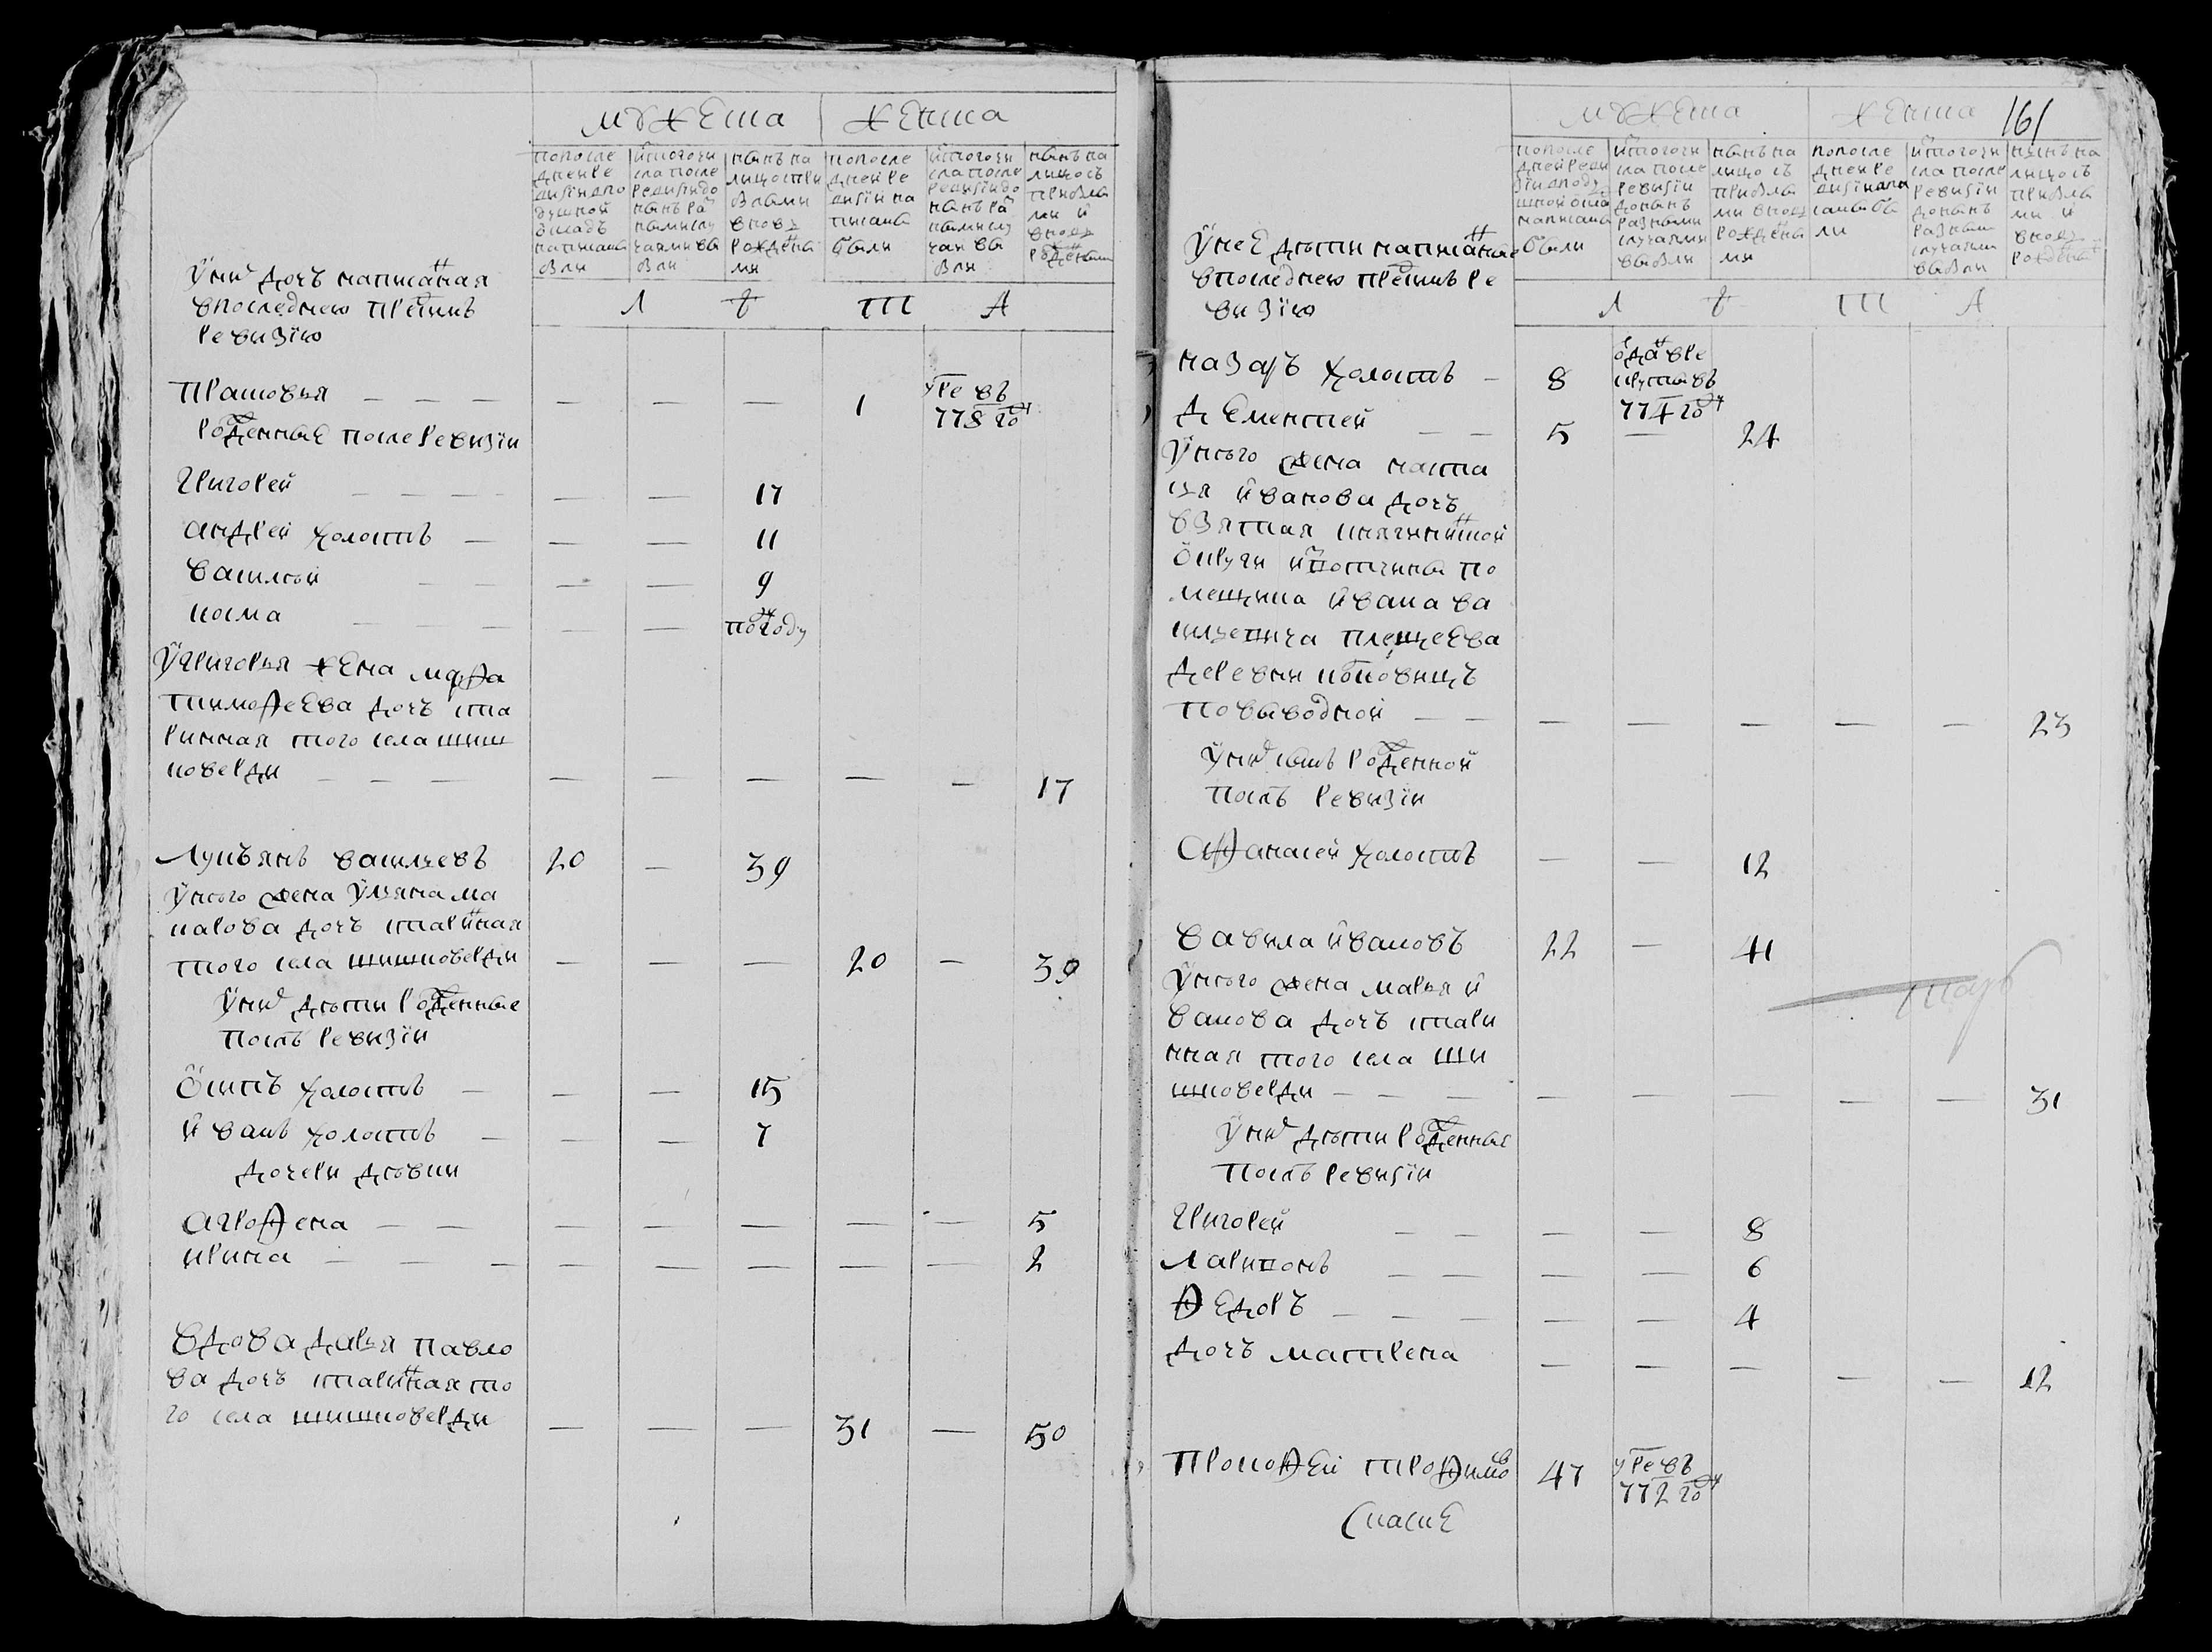 мужеска женска
попосле
дней ре
визии по
душной
складъ
написаны
были
истогочи
сла после
ревизии до
нынъ ра
ными слу
чаями вы
были
нынъ на
лицо с при
былыми
вновь
рожденны
ми
попосле
дней ре
визии на
писаны
были
истогочи
сла после
ревизии до
нынъ ра
ными слу
чаи вы
были
нынъ на
лицо съ
прибылы
ми и
вновь
рожденными
Л Ѣ Т А
У них дочь написанная
в последнею пред симъ
ревизию
Прасковья — — — — — — 1 умре въ 778 году
Рожденные после ревизии
Григорей — — — — — — 17
Андрей холостъ — — — 11
Василей — — — — 9
Косма — — — — — полгоду
У Григорья жена Марфа
Тимофеева дочь ста
ринная того села Шиш
коверди — — — — — — — — 17
Лукъянъ Васильевъ 20 — 39
У ного жена Ульяна Ма
карова дочь старинная
того села Шишковерди — — — 20 — 39
У них дети рожденные
послъ ревизии
Осипъ холостъ — — — 15
Иванъ холостъ — — — 7
дочери девки
Агрофена — — — — — — — 5
Ирина — — — — — — — — 2
Вдова Дарья Павло
ва дочь старинная то
го села Шишковерди — — — 31 — 50
161
мужеска женска
попосле
дней реви
зии по ду
шной окла
написаны
были
истогочи
сла после
ревизии
донынъ
разными
случаями
выбыли
нынъ на
лицо съ
прибылы
ми вновь
рожденны
ми
попосле
дней ре
визии напи
саны бы
ли
истогочи
сла после
ревизии
донынъ
разными
случаями
выбыли
нынъ на
лицо съ
прибылы
ми и
вновь
рожденны
Л Ѣ Т А
У нее дети написанные
в последнею пред симъ ре
визию
Назаръ холостъ — 8 отдан в рекруты въ 774 году
Дементей — — 5 — 24
У ного жена Наста
сья Иванова дочь
взятая
округи и вотчины по
мещика Ивана Ва
сильевича Плещеева
деревни
по выводной — — — — — — — 23
У них сынъ рожденной
послъ ревизии
Афанасей холостъ — — 12
Вавила Ивановъ 22 — 41
У ного жена Марья И
ванова дочь стари
нная того села Ши
шковерди — — — — — — — — 31
У них дети рожденные
послъ ревизии
Григорей — — — — 8
Ларионъ — — — — 6
Федоръ — — — — — 4
дочь Матрена — — — — — 12
Прокофей Трофимов 47 умре въ 772 году